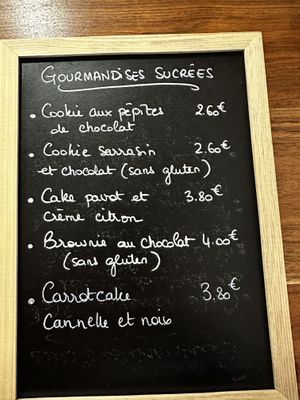 GOURMANDISES SUCRÉES
• Cookie aux pépites 2.60€
de chocolat
• Cookie sarrasin 2.60€
et chocolat (sans gluten)
• Cake pavot et 3.80€
crème citron
• Brownie au chocolat 4.00€
(sans gluten)
• Carrotcake 3.80€
Cannelle et noix